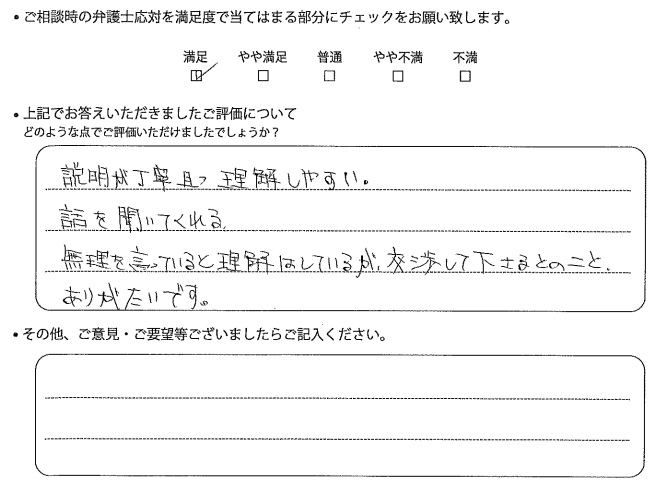 • ご相談時の弁護士応対を満足度で当てはまる部分にチェックをお願い致します。
満足 やや満足 普通 やや不満 不満
☑ □ □ □ □
• 上記でお答えいただきましたご評価について
どのような点でご評価いただけましたでしょうか？
説明が丁寧且つ理解しやすい。
話を聞いてくれる。
無理を言っていると理解はしているが、交渉して下さるとのこと、
ありがたいです。
• その他、ご意見・ご要望等ございましたらご記入ください。